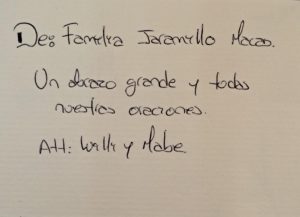 De: Familia Jaramillo Macas.
Un abrazo grande y todas
nuestras oraciones.
Att: Willi y Mabe.